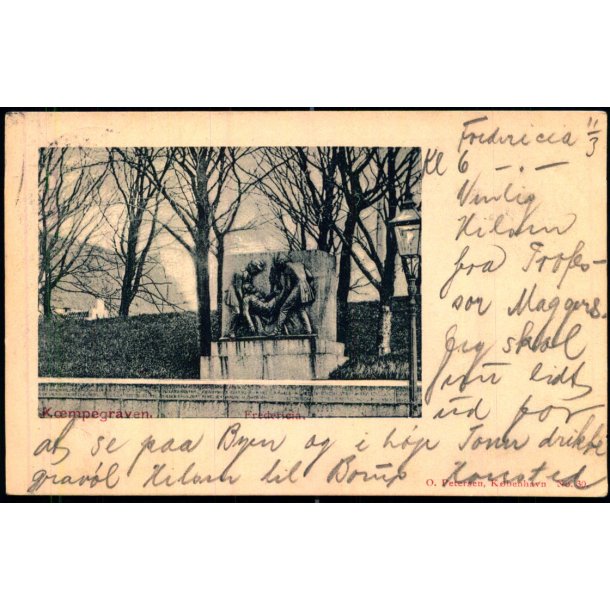 Fredericia 11/3
Kl 6 — . —
Venlig
Hilsen
fra Profes-
sor Maggers.
Jeg skal
nu lidt
ud for
at se paa Byen og i høje Toner drikke
gravöl Hilsen til Borup
Kæmpegraven.
Fredericia.
O. Petersen, København No. 39.